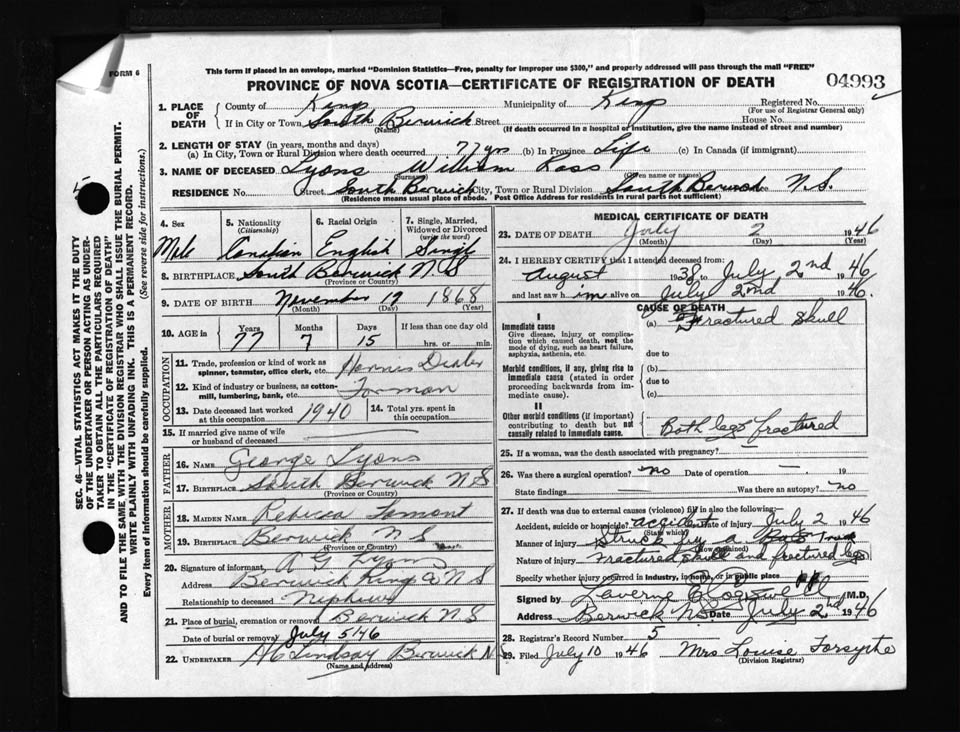 FORM 6
This form if placed in an envelope, marked "Dominion Statistics—Free, penalty for improper use $300," and properly addressed will pass through the mail "FREE"
PROVINCE OF NOVA SCOTIA—CERTIFICATE OF REGISTRATION OF DEATH
04993
1. PLACE OF DEATH
County of Kings Municipality of Kings Registered No.
(For use of Registrar General only)
If in City or Town South Berwick Street House No.
(Name) (If death occurred in a hospital or institution, give the name instead of street and number)
2. LENGTH OF STAY (in years, months and days)
(a) In City, Town or Rural Division where death occurred 77 yrs (b) In Province Life (c) In Canada (if immigrant)
3. NAME OF DECEASED Lyons William Ross
(Surname) (Given name or names)
RESIDENCE No. Street South Berwick City, Town or Rural Division South Berwick Province N.S.
(Residence means usual place of abode. Post Office Address for residents in rural parts not sufficient)
4. Sex
Male
5. Nationality
(Citizenship)
Canadian
6. Racial Origin
English
7. Single, Married, Widowed or Divorced
(write the word)
Single
8. BIRTHPLACE South Berwick N S
(Province or Country)
9. DATE OF BIRTH November 17 1868
(Month) (Day) (Year)
10. AGE in
Years Months Days If less than one day old
77 7 15 hrs. or min.
OCCUPATION
11. Trade, profession or kind of work as spinner, teamster, office clerk, etc. Dealer
12. Kind of industry or business, as cotton-mill, lumbering, bank, etc.
13. Date deceased last worked at this occupation 1940
14. Total yrs. spent in this occupation
15. If married give name of wife or husband of deceased —
FATHER
16. NAME George Lyons
17. BIRTHPLACE South Berwick N S
(Province or Country)
MOTHER
18. MAIDEN NAME Rebecca Lamont
19. BIRTHPLACE Berwick N S
(Province or Country)
20. Signature of informant A G Lyons
Address Berwick Kings Co N S
Relationship to deceased Nephew
21. Place of burial, cremation or removal Berwick N S
Date of burial or removal July 5 46
22. UNDERTAKER Lindsay Berwick N S
(Name and Address)
MEDICAL CERTIFICATE OF DEATH
23. DATE OF DEATH July 2 1946
(Month) (Day) (Year)
24. I HEREBY CERTIFY that I attended deceased from:
August 1938 to July 2nd 1946
and last saw him alive on July 2nd 1946.
CAUSE OF DEATH
I
Immediate cause
Give disease, injury or complication which caused death, not the mode of dying, such as heart failure, asphyxia, asthenia, etc.
(a) Fractured Skull
due to
Morbid conditions, if any, giving rise to immediate cause (stated in order proceeding backwards from immediate cause).
(b)
due to
(c)
II
Other morbid conditions (if important) contributing to death but not causally related to immediate cause.
Both legs fractured
25. If a woman, was the death associated with pregnancy? —
26. Was there a surgical operation? no Date of operation — 19
State findings — Was there an autopsy? no
27. If death was due to external causes (violence) fill in also the following:
Accident, suicide or homicide? accident Date of injury July 2 1946
(State which)
Manner of injury Struck by a
(How sustained)
Nature of injury Fractured skull and fractured legs
Specify whether injury occurred in industry, in home, or in public place
Signed by Laverne M.D.
Address Berwick NS Date July 2nd 1946
28. Registrar's Record Number 5
29. Filed July 10 1946 Mrs Louise Forsythe
(Division Registrar)
SEC. 46—VITAL STATISTICS ACT MAKES IT THE DUTY
OF THE UNDERTAKER OR PERSON ACTING AS UNDER-
TAKER TO OBTAIN ALL THE PARTICULARS REQUIRED
IN THE "CERTIFICATE OF REGISTRATION OF DEATH"
AND TO FILE THE SAME WITH THE DIVISION REGISTRAR WHO SHALL ISSUE THE BURIAL PERMIT.
WRITE PLAINLY WITH UNFADING INK. THIS IS A PERMANENT RECORD.
Every item of information should be carefully supplied. (See reverse side for instructions.)